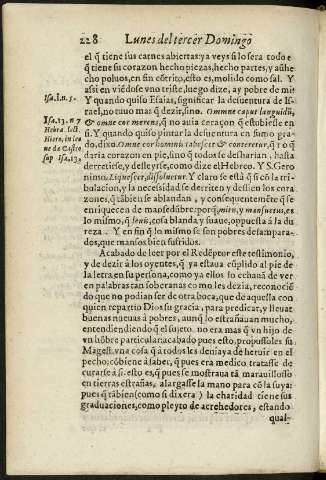 228 Lunes del tercer Domingo
el q̃ tiene sus carnes abiertas: ya veys si lo sera todo e
el q̃ tiene su corazon hecho piezas, hecho partes, y aũ he
cho poluos, en fin cõtrito, esto es, molido como sal. Y
assi en viédose vno triste, luego dize, ay pobre de mi:
Y quando quiso Esaias, significar la desuentura de Is-
Isa. I. n. 5.
rael, no tuuo mas q̃ dezir, sino. Omne caput languidũ,
Isa. 13. n 7
& omne cor merens, q̃ no auia coraçon q̃ estobiesse en
Hebra lect.
si. Y quando quiso pintar la desuentura en sumo gra-
Hiero. in
do, dixo. Omne cor hominis tabescet & conteretur, q̃
daria corazon en pie, sino q̃ todos se desharian, hasta
sup Isa. 13.
derretirse, y deleyrse, como dize el Hebreo. Y S. Gero
nimo. Liquescet, dissoluetur. Y claro se està q̃ si cõ la tri-
bulacion, y la necessidad se derriten y deslien los cora
zones, q̃ tãbien se ablandan, y consequentemẽte q̃ se
enriquecen de mansedũbre: porq̃, mitis, y mansuetus, es
lo mismo, q̃ lenis, cosa blanda y suaue, oppuesta à la du
reza. Y en fin q̃ lo mismo es ser pobres desampara-
dos, que mansos bien sufridos.
Acabado de leer por el Redẽptor este testimonio,
y de dezir à los oyentes, q̃ ya estaua cũplido al pie de
la letra, en su persona, como ya ellos lo echauã de ver
en palabras tan soberanas como les dezia, reconociẽ
do que no podian ser de otra boca, que de aquella con
quien repartio Dios su gracia, para predicar, y lleuar
buenas nueuas à pobres, aunq̃ lo estrañauan mucho,
entendiendiendo q̃ el sujeto no era mas q̃ vn hijo de
vn hõbre particular: acabado pues esto, propusoles su
Magest. vna cosa q̃ à todos les deuia ya de heruir en el
pecho: cõbiene à saber, q̃ pues era medico tratasse de
curarse à si: esto es, q̃ pues se mostraua tã marauilloso
en tierras estrañas, alargasse la mano para cõ la suya:
pues q̃ tãbien (como si dixera) la charidad tiene sus
graduaciones, como pleyto de acrehedores, estando
qual-